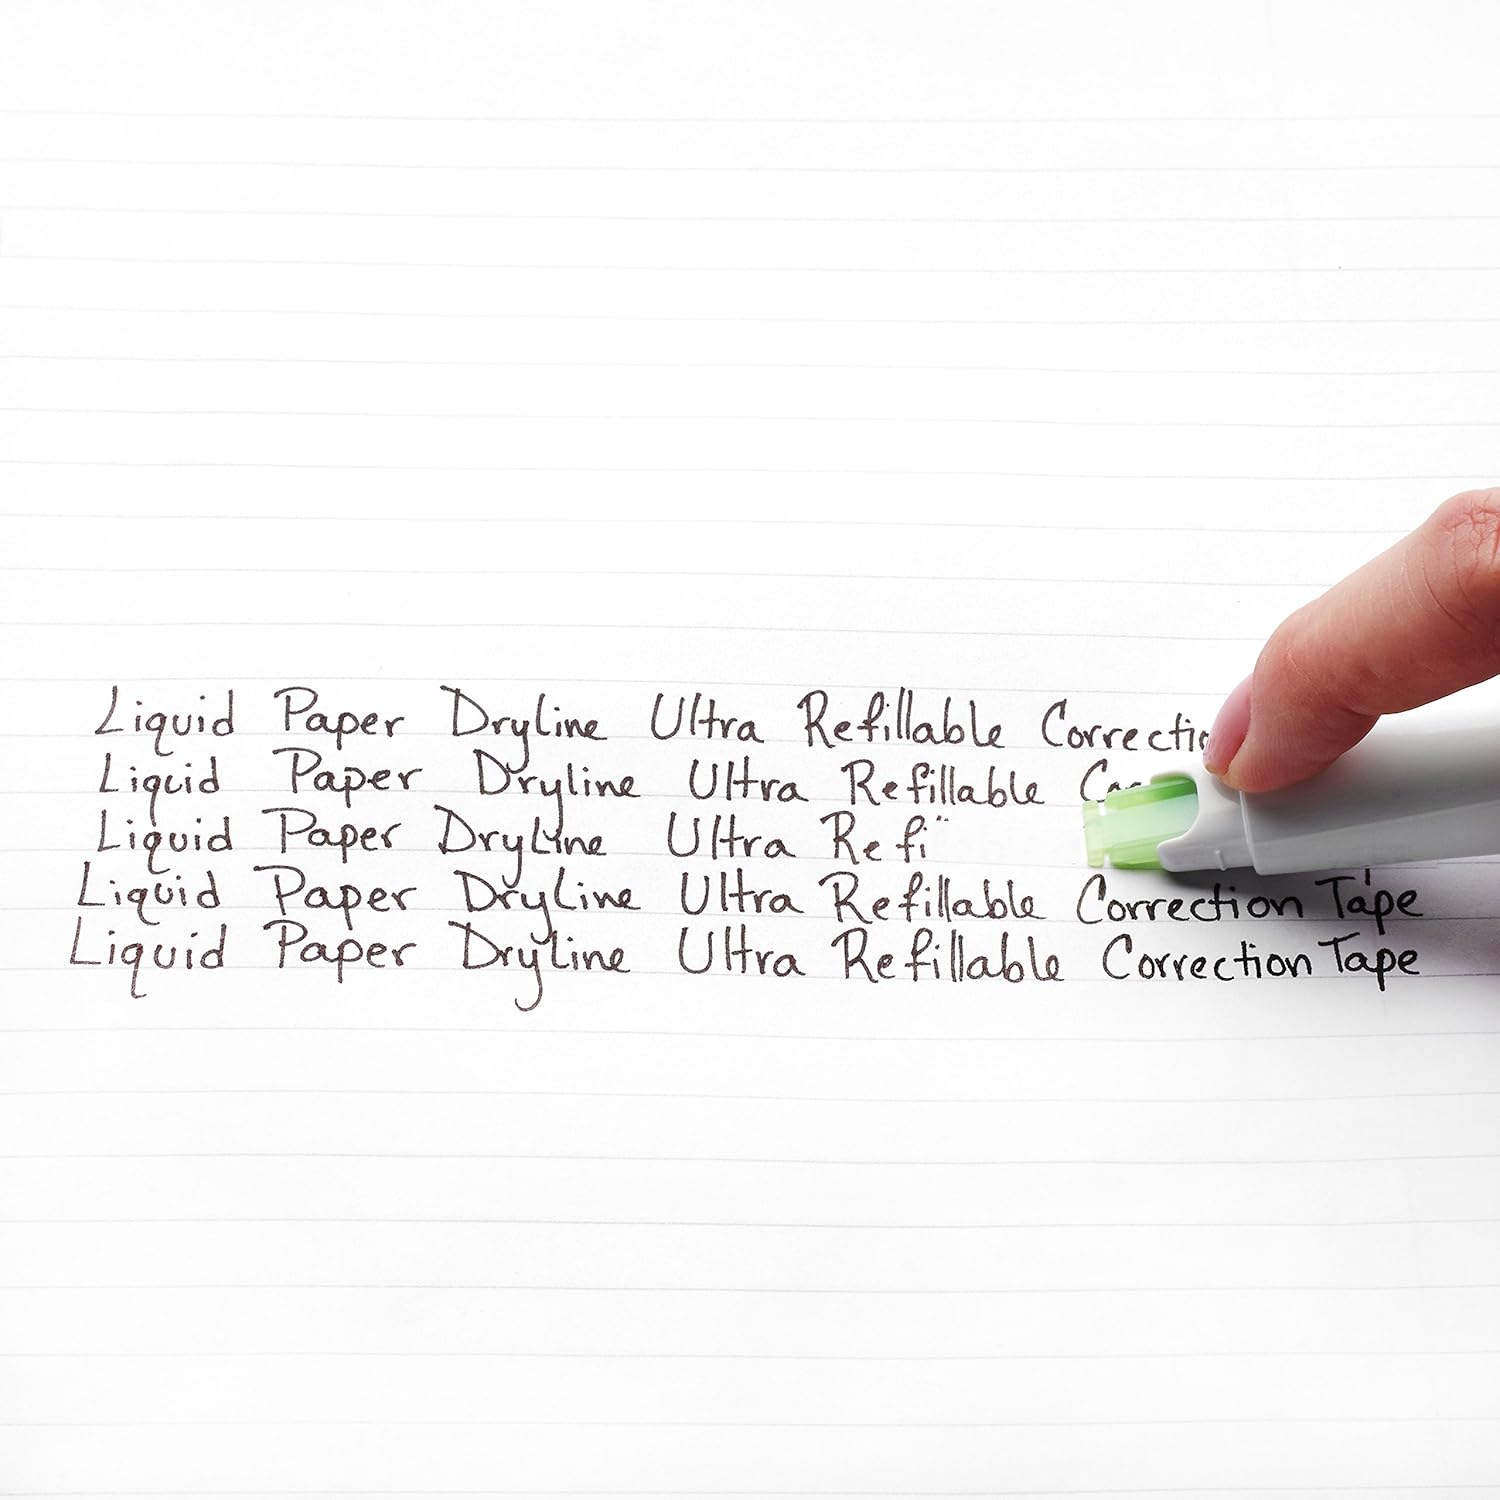 Liquid Paper Dryline Ultra Refillable Correctio
Liquid Paper Dryline Ultra Refillable
Liquid Paper Dryline Ultra Refi
Liquid Paper Dryline Ultra Refillable Correction Tape
Liquid Paper Dryline Ultra Refillable Correction Tape